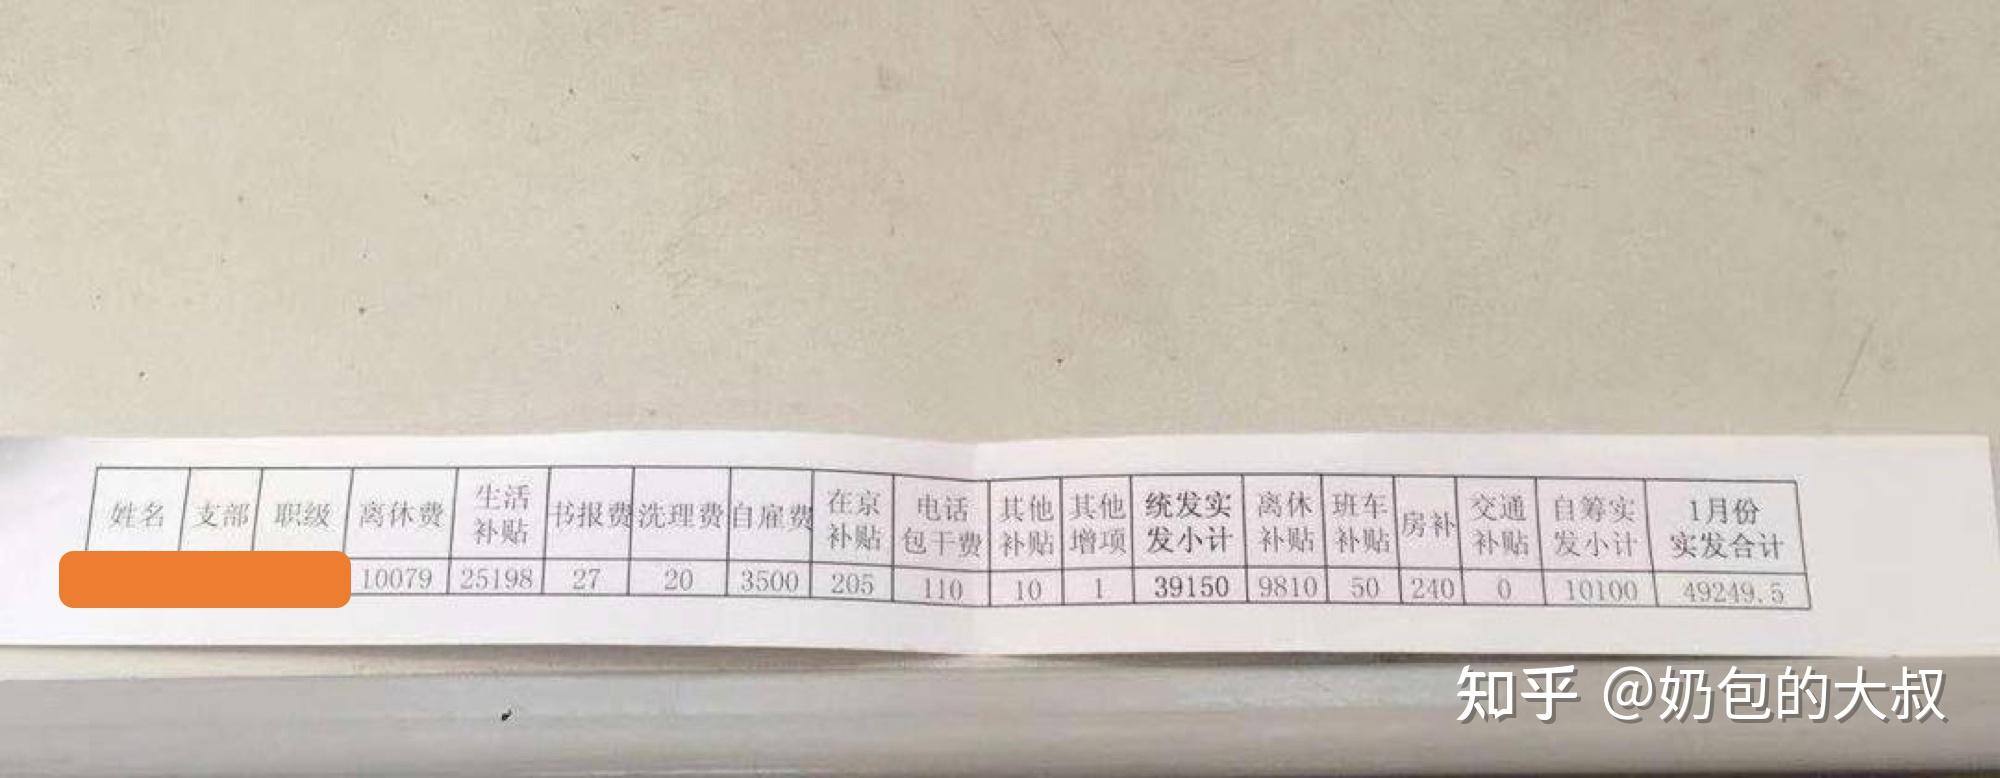 姓名 支部 职级 离休费 生活补贴 书报费 洗理费 自雇费 在京补贴 电话包干费 其他补贴 其他增项 统发实发小计 离休补贴 班车补贴 房补 交通补贴 自筹实发小计 1月份实发合计
10079 25198 27 20 3500 205 110 10 1 39150 9810 50 240 0 10100 49249.5
知乎 @奶包的大叔